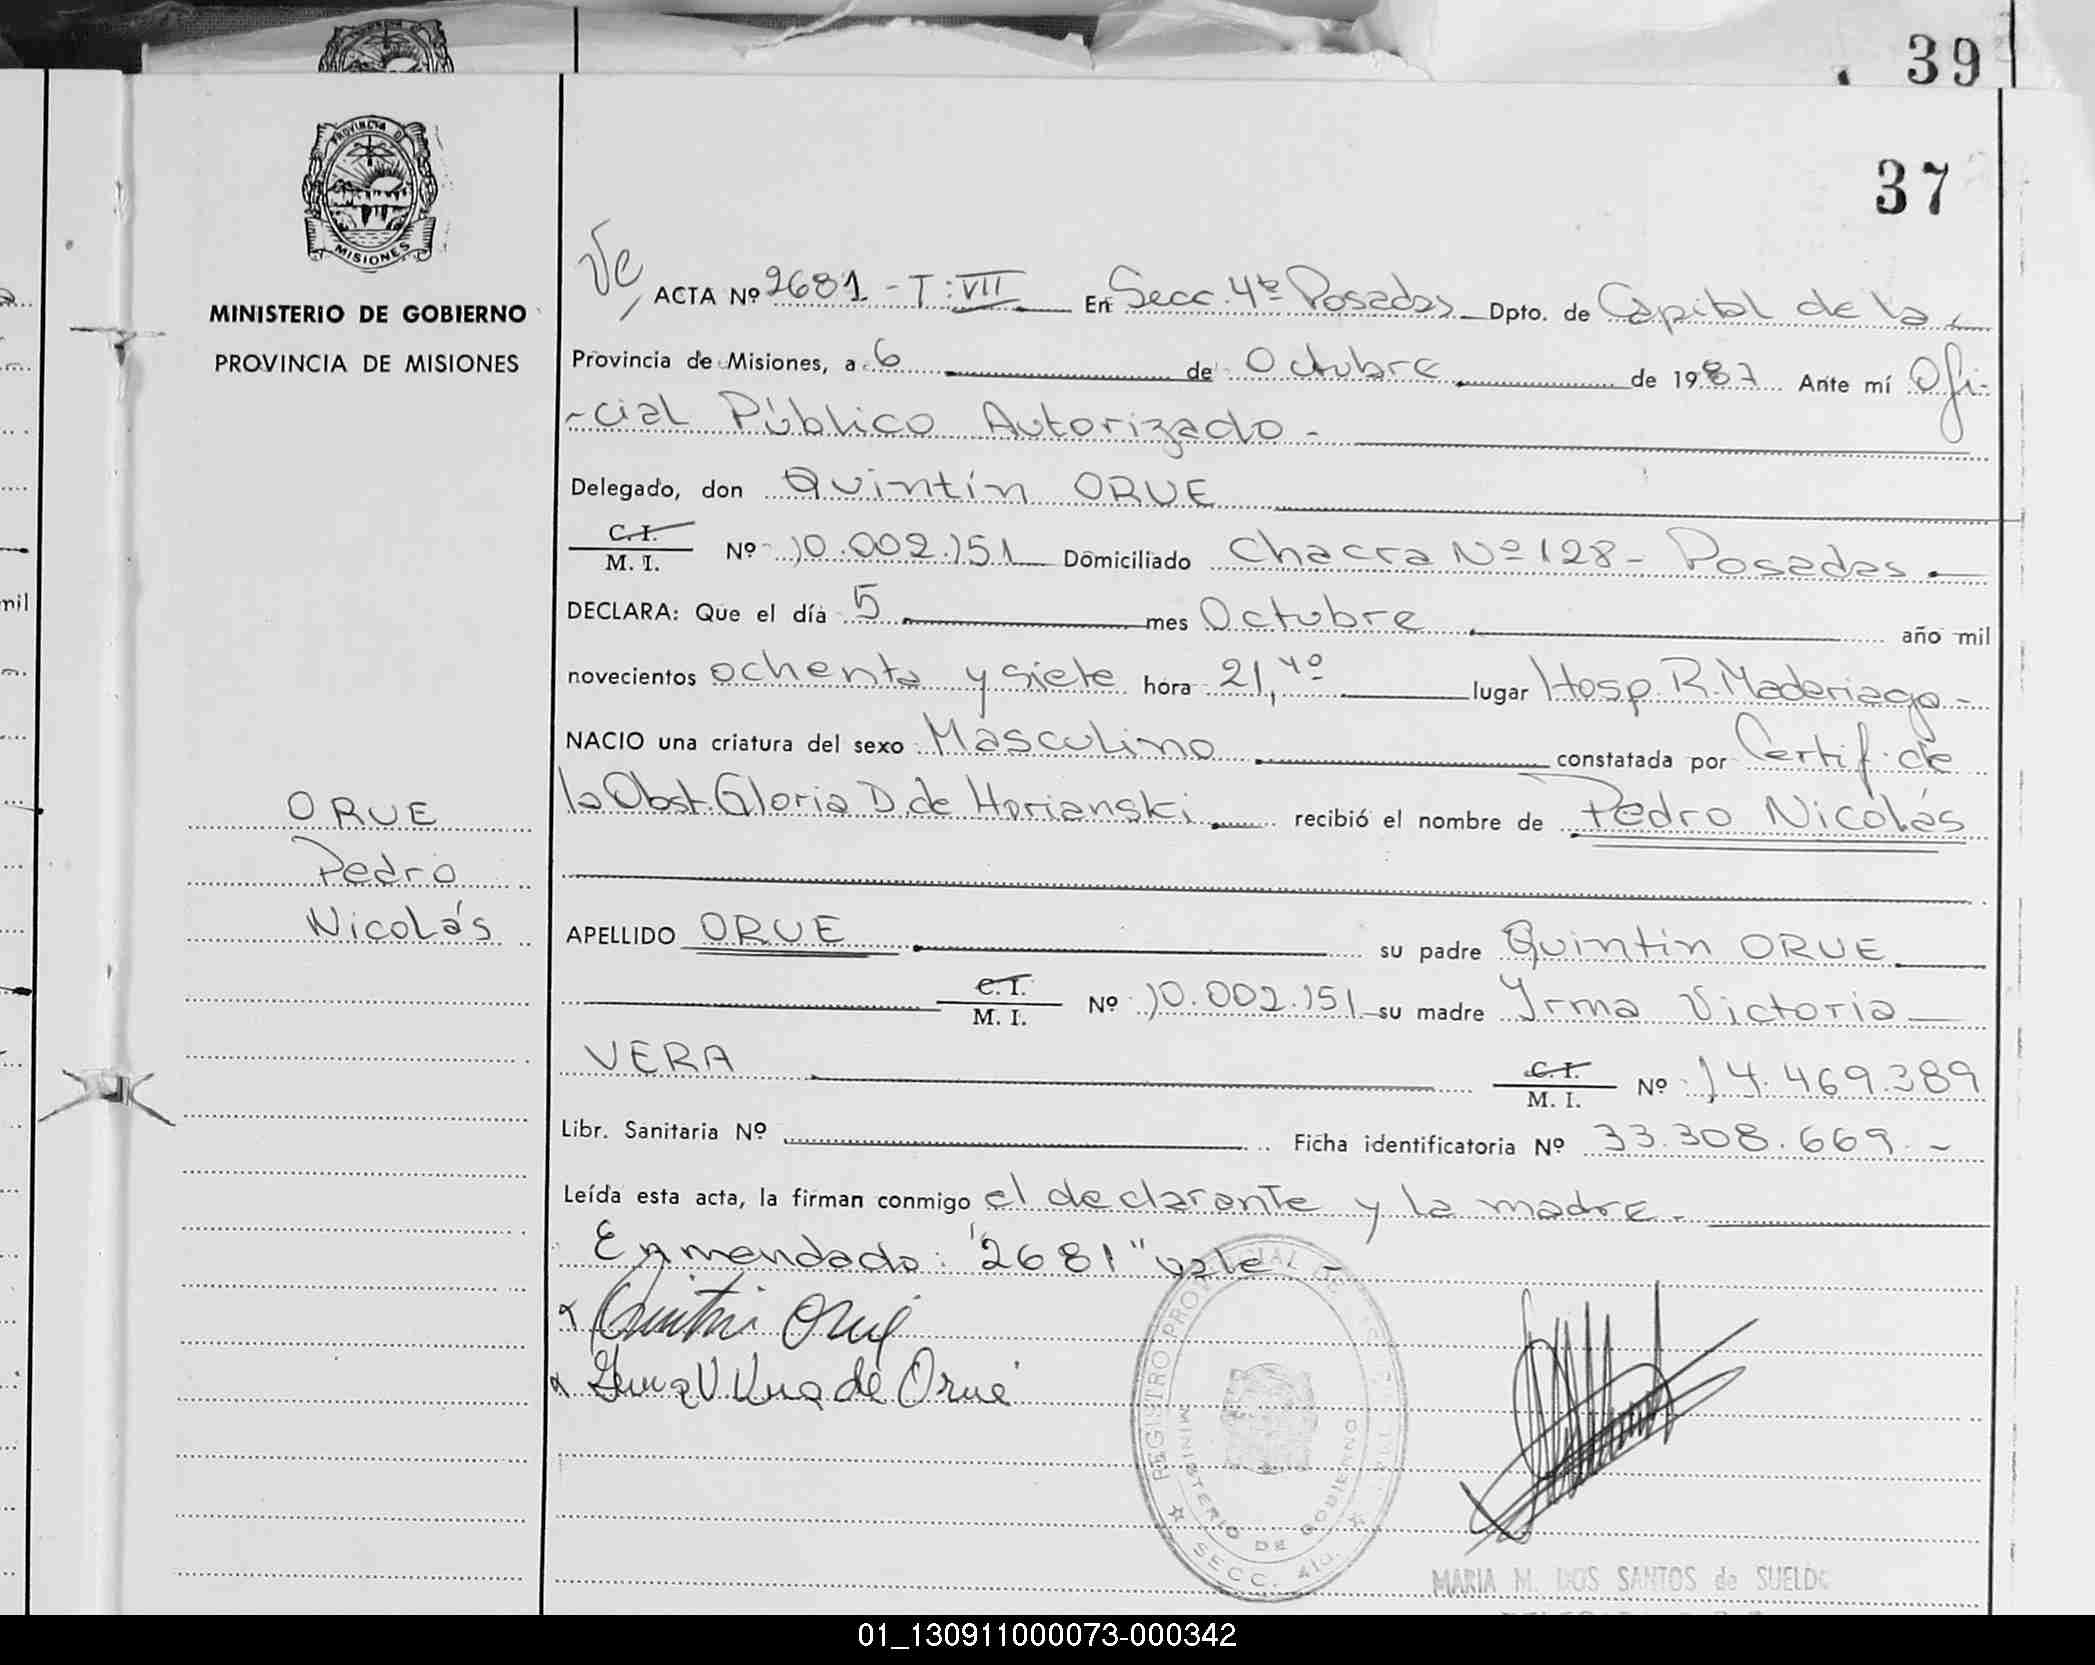 39
37
PROVINCIA D
MISIONES
MINISTERIO DE GOBIERNO
PROVINCIA DE MISIONES
ACTA Nº 2681 - T: VII En Secc. 4ta Posadas Dpto. de Capital de la
Provincia de Misiones, a 6 de Octubre de 1987 Ante mí Ofi-
-cial Público Autorizado -
Delegado, don Quintín ORUE
C. I.
M. I. Nº 10.002.151 Domiciliado Chacra Nº 128 - Posadas
DECLARA: Que el día 5 mes Octubre año mil
novecientos ochenta y siete hora 21,40 lugar Hosp. R. Maderiaga -
NACIO una criatura del sexo Masculino constatada por Certif. de
la Obst. Gloria D. de Horianski recibió el nombre de Pedro Nicolás
ORUE
Pedro
Nicolás
APELLIDO ORUE su padre Quintín ORUE
C. I.
M. I. Nº 10.002.151 su madre Yrma Victoria
VERA C. I.
M. I. Nº 14.469.389
Libr. Sanitaria Nº Ficha identificatoria Nº 33.308.669. -
Leída esta acta, la firman conmigo el declarante y la madre -
Enmendado: "2681" vale -
Quintin Orué
Yrma V. Vera de Orué
REGISTRO PROVINCIAL DE
MINISTERIO DE GOBIERNO
SECC. 4ta.
MARIA M. DOS SANTOS de SUELDO
mil
01_130911000073-000342